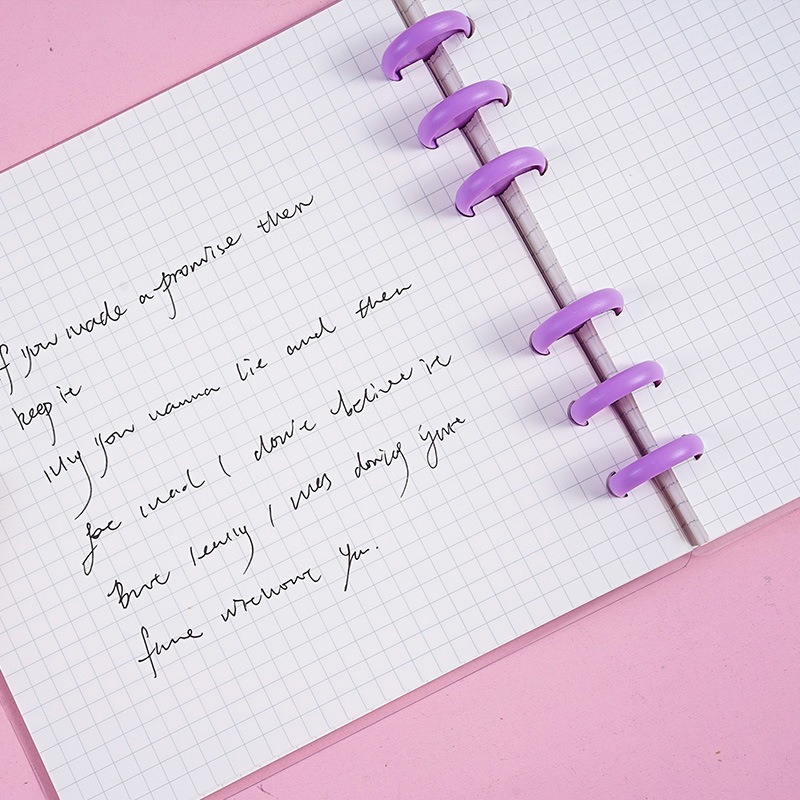 If you made a promise then
keep it
Why you wanna lie and then
be mad I don't believe it
But really I was doing just
fine without you.